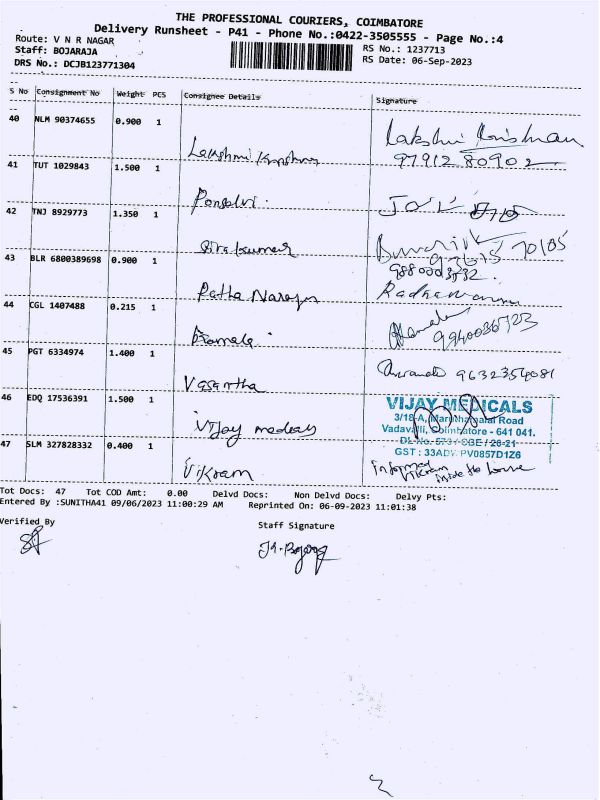 THE PROFESSIONAL COURIERS, COIMBATORE
Delivery Runsheet - P41 - Phone No.:0422-3505555 - Page No.:4
Route: V N R NAGAR
RS No.: 1237713
Staff: BOJARAJA
RS Date: 06-Sep-2023
DRS No.: DCJB123771304
S No Consignment No Weight PCS Consignee Details Signature
40 NLM 90374655 0.900 1 Lakshmi Krishna Lakshmi Krishnan
97912 80902
41 TUT 1029843 1.500 1 Ponselvi
42 TNJ 8929773 1.350 1 Sivakumar 70105
43 BLR 6800389698 0.900 1 Patta Narayan
44 CGL 1407488 0.215 1 Pramala 9940036723
45 PGT 6334974 1.400 1 Vasantha 9632354081
46 EDQ 17536391 1.500 1 Vijay medicals
VIJAY MEDICALS
3/18-A, Maruthamalai Road
Vadavalli, Coimbatore - 641 041.
DL No. 573 / CBE / 20-21
GST : 33ADV PV0857D1Z6
47 SLM 327828332 0.400 1 Vikram
informed
Vikram inside the house
Tot Docs: 47 Tot COD Amt: 0.00 Delvd Docs: Non Delvd Docs: Delvy Pts:
Entered By :SUNITHA41 09/06/2023 11:00:29 AM Reprinted On: 06-09-2023 11:01:38
Verified By
Staff Signature